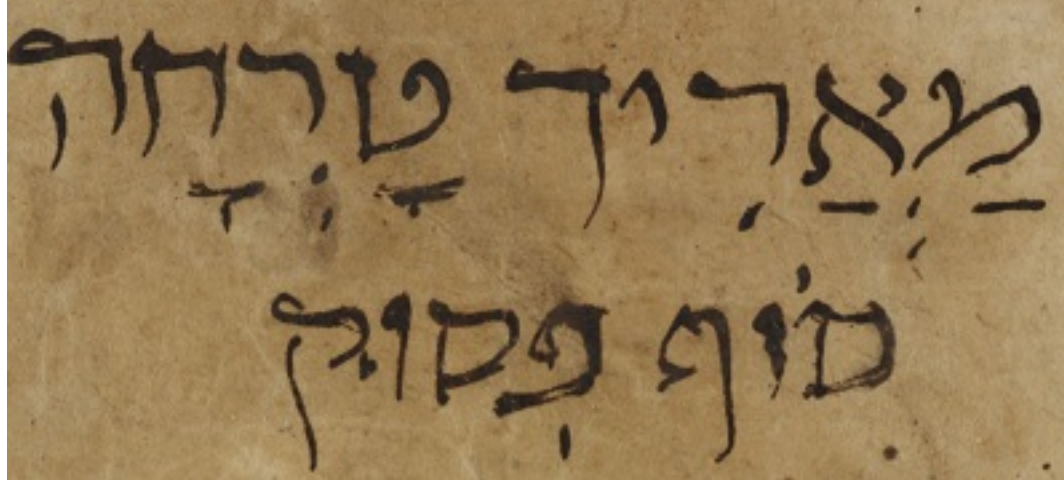 מַאֲרִיךְ טָרְחָה
סוֹף פְּסוּק